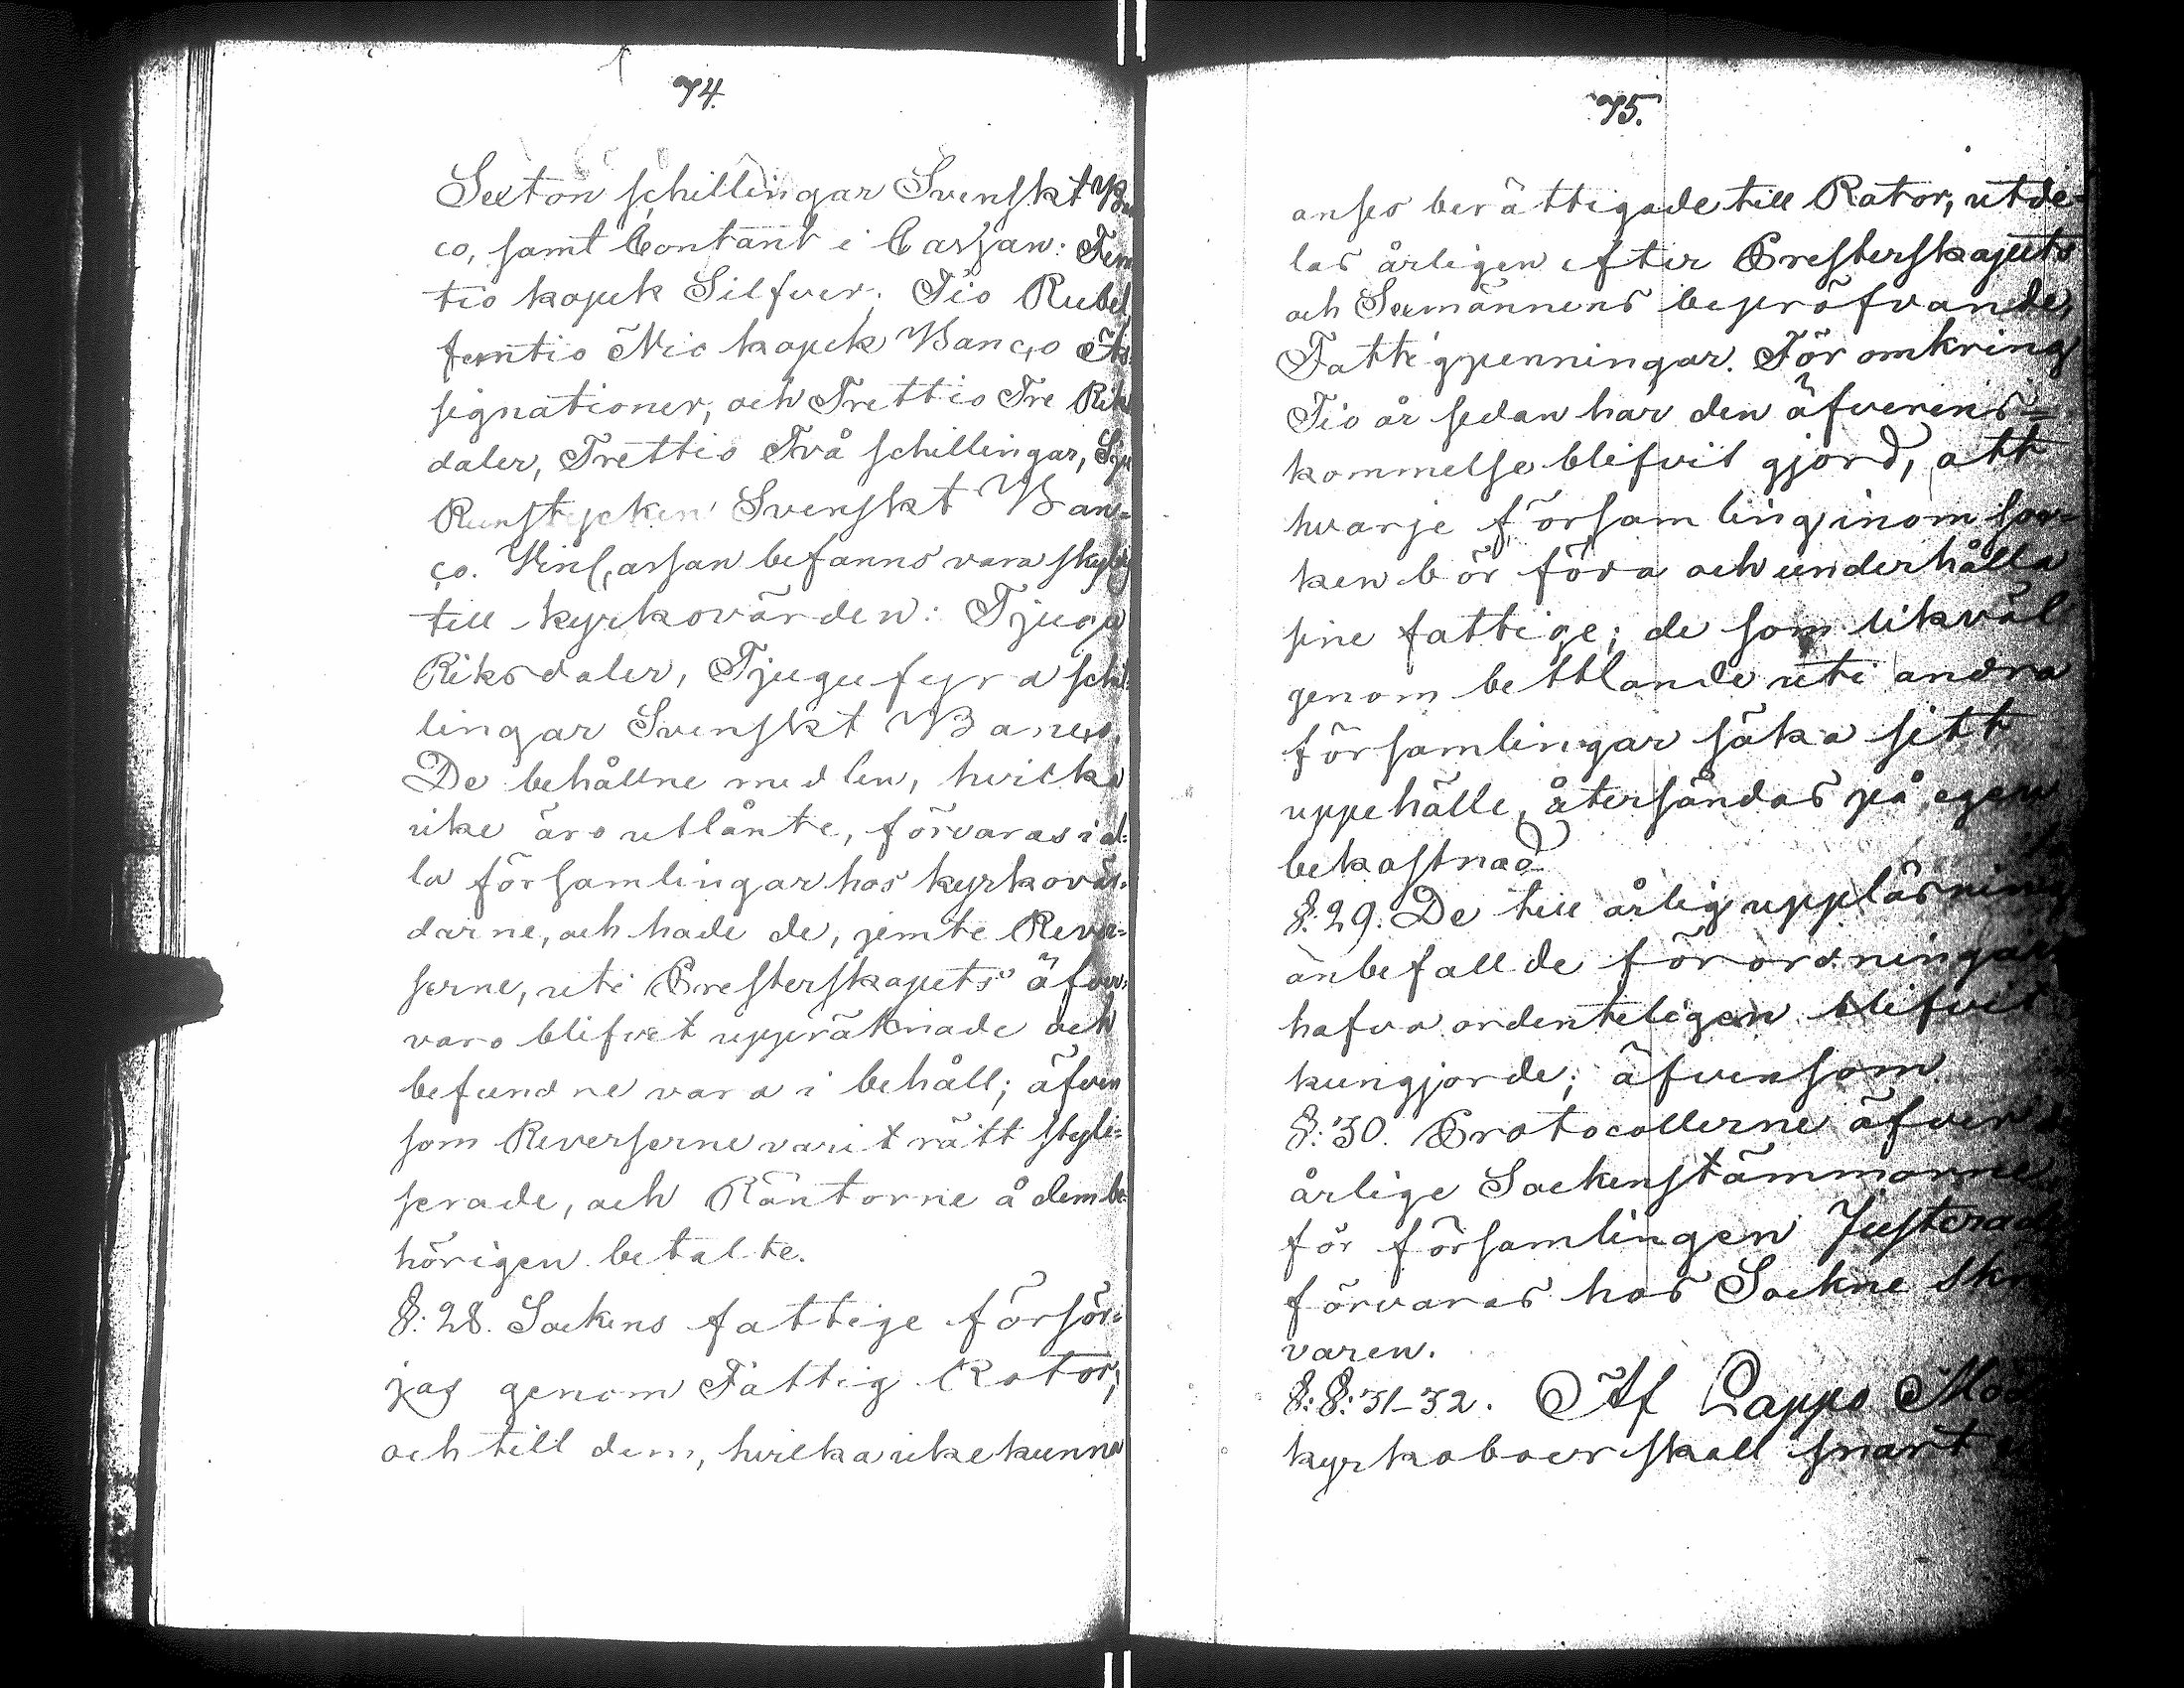 74.
Sexton schillingar Svenskt Ban
co, samt Contant i Cassan: Fem
tio kopek Silfver; Tio Rubel
femtio Nio kopek Banco As
signationer, och Trettio Tre Rik
daler, Trettio Två schillingar,
Runstycken Svenskt Ban=
co. Vin Cassan befanns vara skyldig
till kyrkovärden: Tjugu
Riksdaler, Tjugufyra schil
lingar Svenskt Banco.
De behållne medlen, hvilka
icke äro utlånte, förvaras i al=
la församlingar hos kyrkovär=
darne, och hade de, jemte Rever=
serne, uti Presterskapets öfver=
varo blifvit uppräknade och
befundne vara i behåll; äfven
som Reverserne varit rätt styli=
serade, och Räntorne å dem be=
hörigen betalte.
§: 28. Sockens fattige försör=
jas genom Fattig Rotor;
och till dem, hvilka icke kunna
75.
anses berättigade till Rotor, utde=
las årligen efter Presterskapets
och Sexmännens bepröfvande,
Fattigpenningar. För omkring
Tio år sedan har den öfverens=
kommelse blifvit gjord, att
hvarje församling inom soc=
ken bör föda och underhålla
sine fattige; de som likväl
genom bettlande uti andra
församlingar söka sitt
uppehälle, återsändas på egen
bekostnad
§: 29. De till årlig uppläsning
anbefallde förordningar
hafva ordenteligen blifvit
kungjorde; äfvensom
§: 30. Protocollerne öfver
årlige Sockenstämmorne
för församlingen Justerade
förvaras hos Sockne Skri
varen.
§: §: 31-32. Af Lappo Mod
kyrkoboer skall snart